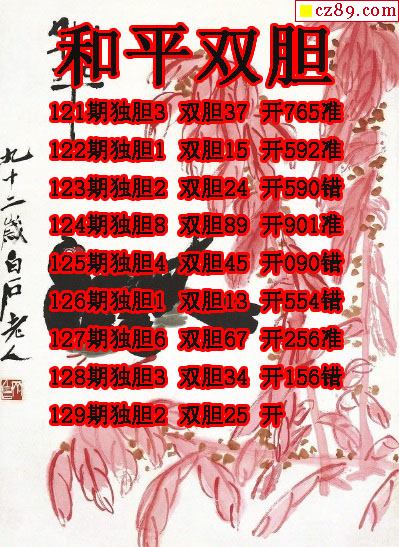 cz89.com
和平双胆
121期独胆3 双胆37 开765准
122期独胆1 双胆15 开592准
123期独胆2 双胆24 开590错
124期独胆8 双胆89 开901准
125期独胆4 双胆45 开090错
126期独胆1 双胆13 开554错
127期独胆6 双胆67 开256准
128期独胆3 双胆34 开156错
129期独胆2 双胆25 开
九十二岁白石老人